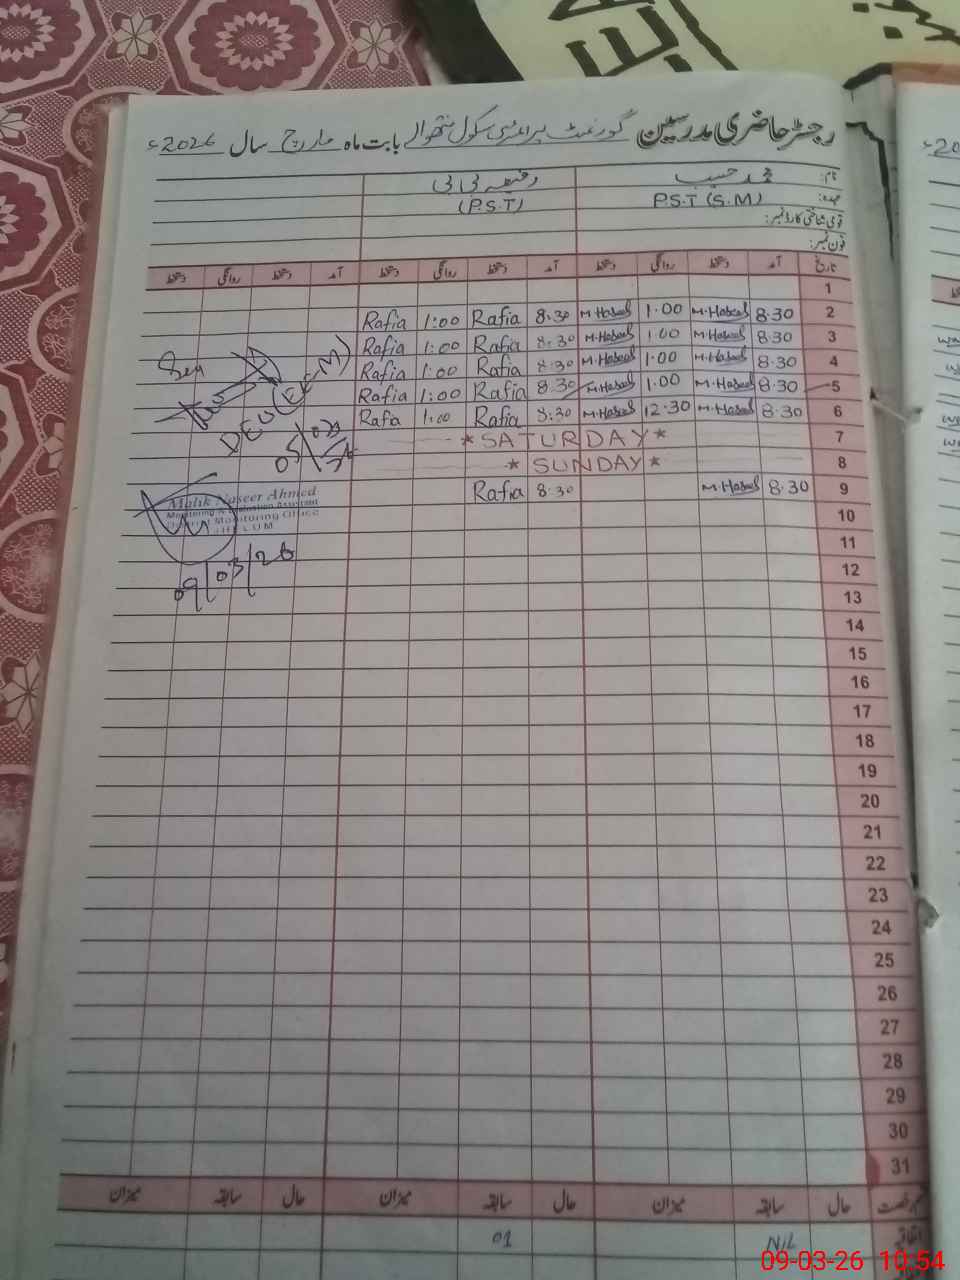 رجسٹر حاضری مدرسین گورنمنٹ پرائمری سکول نتھوالے بابت ماہ مارچ سال 2026ء
نام: محمد حسیب رفیعہ بی بی
عہدہ: P.S.T (S.M) (P.S.T)
قومی شناختی کارڈ نمبر:
فون نمبر:
تاریخ آمد دستخط روانگی دستخط آمد دستخط روانگی دستخط آمد دستخط روانگی دستخط
1
2 8.30 M.Haseeb 1.00 M.Haseeb 8:30 Rafia 1:00 Rafia
3 8.30 M.Haseeb 1.00 M.Haseeb 8:30 Rafia 1:00 Rafia
4 8.30 M.Haseeb 1.00 M.Haseeb 8:30 Rafia 1:00 Rafia
5 8.30 M.Haseeb 1.00 M.Haseeb 8.30 Rafia 1:00 Rafia
6 8.30 M.Haseeb 12.30 M.Haseeb 8:30 Rafia 1:00 Rafia
7 *SATURDAY*
8 *SUNDAY*
9 8.30 M.Haseeb 8.30 Rafia
Seen
05/03/26
Malik Naseer Ahmed
Monitoring & Evaluation Assistant
District Monitoring Office
JHELUM
09/03/26
10
11
12
13
14
15
16
17
18
19
20
21
22
23
24
25
26
27
28
29
30
31
رخصت حال سابقہ میزان حال سابقہ میزان حال سابقہ میزان
اتفاقیہ NIL 01
09-03-26 10:54